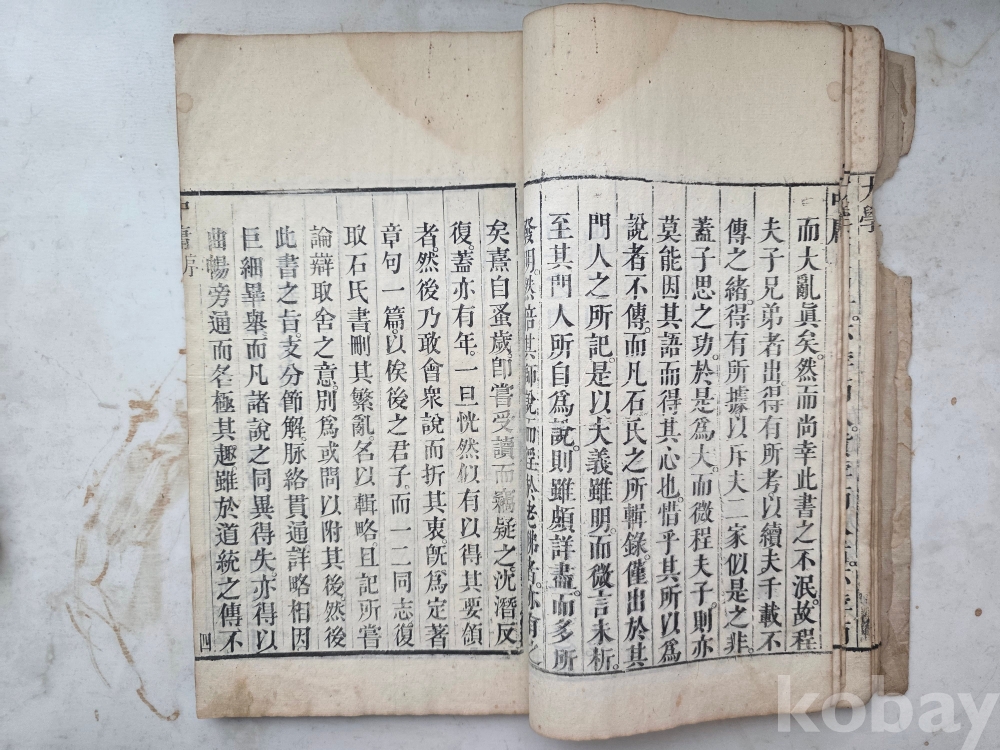 大學
中庸
而大亂眞矣。然而尚幸此書之不泯。故程
夫子兄弟者出。得有所考以續夫千載不
傳之緒。得有所據以斥夫二家似是之非。
蓋子思之功。於是爲大。而微程夫子。則亦
莫能因其語而得其心也。惜乎其所以爲
說者不傳。而凡石氏之所輯錄。僅出於其
門人之所記。是以大義雖明。而微言未析。
至其門人所自爲說。則雖頗詳盡。而多所
發明。然倍其師說而淫於老佛者。亦有之
矣熹自蚤歲。卽嘗受讀而竊疑之。沈潛反
復。蓋亦有年。一旦恍然似有以得其要領
者。然後乃敢會衆說而折其衷。旣爲定著
章句一篇。以俟後之君子。而一二同志。復
取石氏書刪其繁亂。名以輯略。且記所嘗
論辯取舍之意。別爲或問以附其後。然後
此書之旨。支分節解。脉絡貫通。詳略相因
巨細畢舉。而凡諸說之同異得失。亦得以
曲暢旁通而各極其趣。雖於道統之傳。不
中庸序
四
kobay